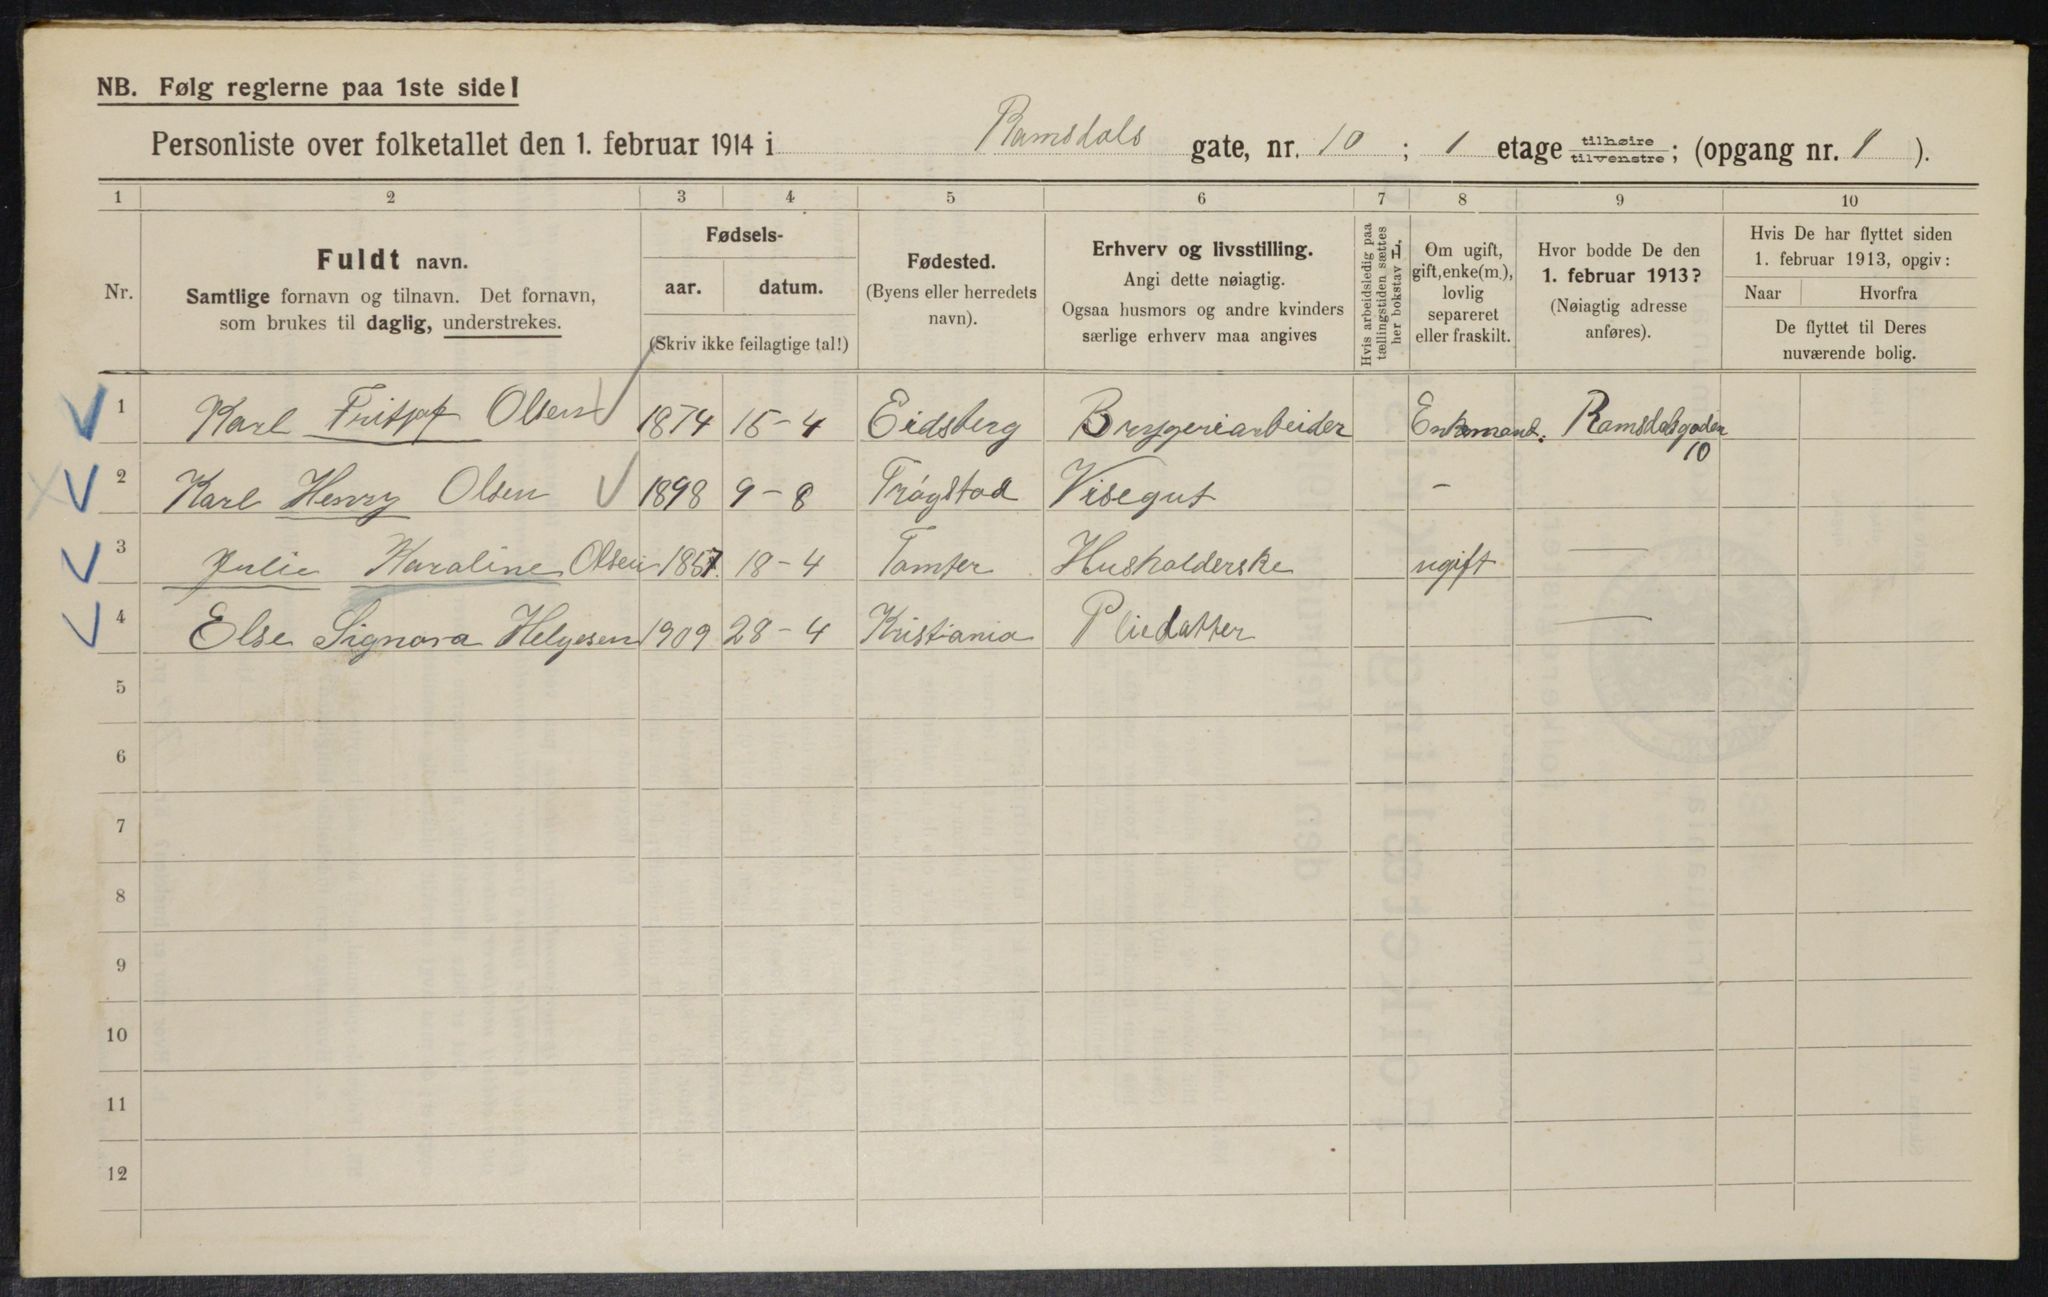 NB. Følg reglerne paa 1ste side!
Personliste over folketallet den 1. februar 1914 i Ramsdals gate, nr. 10 ; 1 etage tilhøire tilvenstre; (opgang nr. 1 ).
1 2 3 4 5 6 7 8 9 10
Nr.
Fuldt navn.
Samtlige fornavn og tilnavn. Det fornavn,
som brukes til daglig, understrekes.
Fødsels-
aar. datum.
(Skriv ikke feilagtige tal!)
Fødested.
(Byens eller herredets
navn).
Erhverv og livsstilling.
Angi dette nøiagtig.
Ogsaa husmors og andre kvinders
særlige erhverv maa angives
Hvis arbeidsledig paa
tællingstiden sættes
her bokstav L.
Om ugift,
gift, enke(m.),
lovlig
separeret
eller fraskilt.
Hvor bodde De den
1. februar 1913?
(Nøiagtig adresse
anføres).
Hvis De har flyttet siden
1. februar 1913, opgiv:
Naar Hvorfra
De flyttet til Deres
nuværende bolig.
1 Karl Fritjof Olsen 1874 15-4 Eidsberg Bryggeriarbeider Enkemand. Ramsdalsgaden
10
2 Karl Henry Olsen 1898 9-8 Trøgstad Visegut -
3 Julie Karoline Olsen 18 18-4 Tomter Husholderske ugift —
4 Else Signora Helgesen 1909 28-4 Kristiania Pliedatter —
5
6
7
8
9
10
11
12